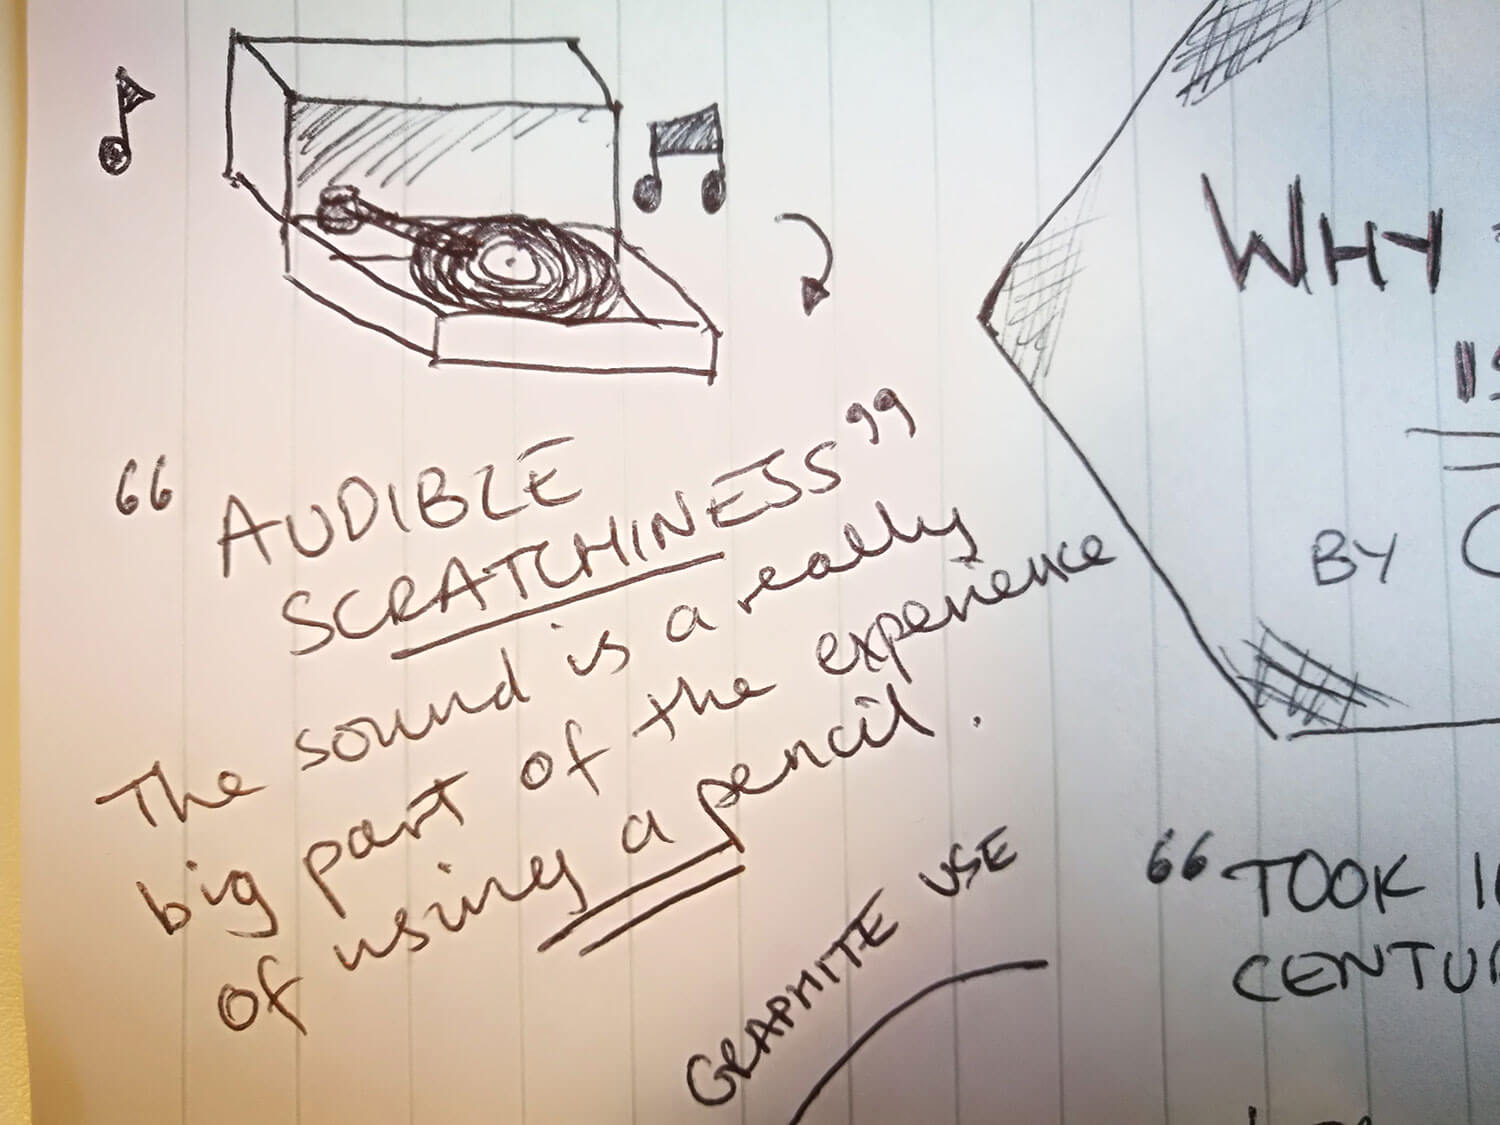 “AUDIBLE
SCRATCHINESS”
The sound is a really
big part of the experience
of using a pencil.
GRAPHITE USE
WHY
IS
BY
“TOOK
CENTU